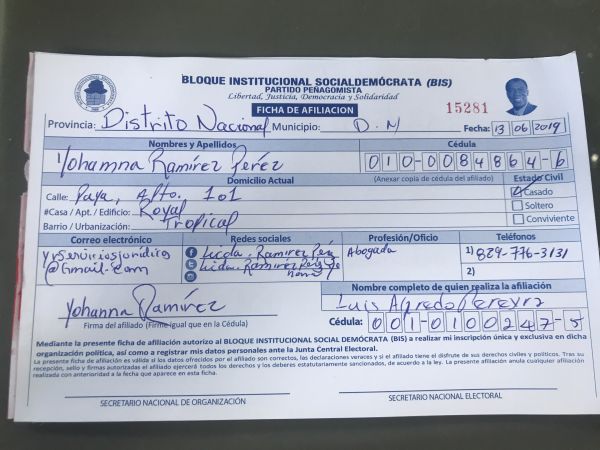 BLOQUE INSTITUCIONAL SOCIALDEMÓCRATA (BIS)
PARTIDO PEÑAGOMISTA
Libertad, Justicia, Democracia y Solidaridad
FICHA DE AFILIACION
15281
Provincia: Distrito Nacional Municipio: D.N Fecha: 13 06 2019
Nombres y Apellidos Cédula
Yohamna Ramírez Perez 010-0084864-6
Domicilio Actual (Anexar copia de cédula del afiliado) Estado Civil
Calle: Paya, Apto. 101 Casado
#Casa / Apt. / Edificio: Royal Soltero
Barrio / Urbanización: Tropical Conviviente
Correo electrónico Redes sociales Profesión/Oficio Teléfonos
yrserviciosjuridicos Licda. Ramírez Abogada 1) 829-776-3131
@Gmail.com Licda. Ramírez 2)
Nombre completo de quien realiza la afiliación
Yohanna Ramírez Luis Alfredo Pereyra
Firma del afiliado (Firme igual que en la Cédula) Cédula: 001-0100247-5
Mediante la presente ficha de afiliación autorizo al BLOQUE INSTITUCIONAL SOCIAL DEMÓCRATA (BIS) a realizar mi inscripción única y exclusiva en dicha
organización política, así como a registrar mis datos personales ante la Junta Central Electoral.
La presente ficha de afiliación es válida si los datos ofrecidos por el afiliado son correctos, las declaraciones veraces y si el afiliado tiene el disfrute de sus derechos civiles y políticos. Tras su
recepción, sello y firmas autorizadas el afiliado ejercerá todos los derechos y los deberes estatutariamente sancionados, de acuerdo a la ley. La presente afiliación anula cualquier afiliación
realizada con anterioridad a la fecha que aparece en esta ficha.
SECRETARIO NACIONAL DE ORGANIZACIÓN SECRETARIO NACIONAL ELECTORAL